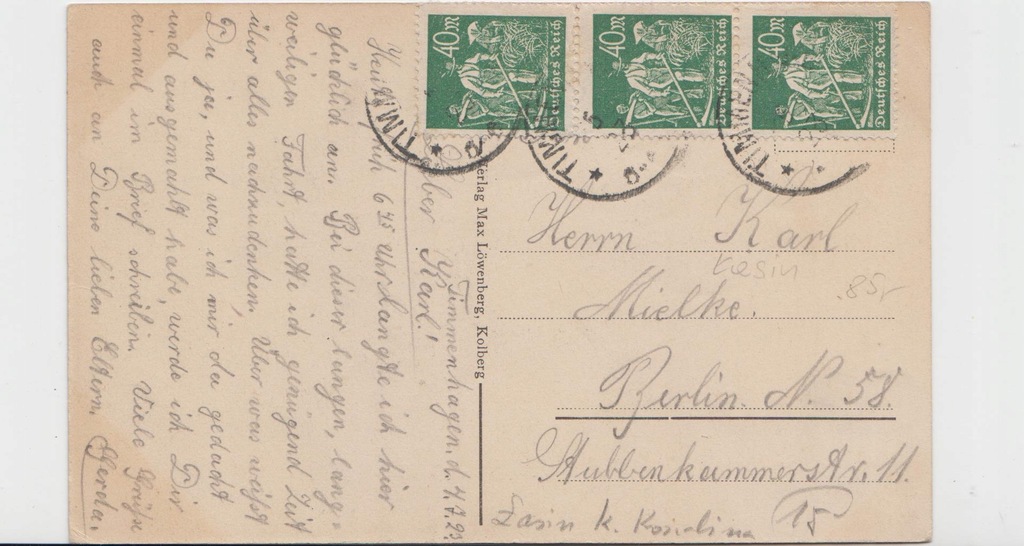 40 M
Deutsches Reich
40 M
Deutsches Reich
40 M
Deutsches Reich
TIMM
TIMM
TIMMENHA
Timmenhagen, d. 4.7.23.
Lieber Karl!
Heut früh 6 Uhr langte ich hier
glücklich an. Bei dieser langen, lang-
weiligen Fahrt, hatte ich genügend Zeit
über alles nachzudenken. Über was weißt
Du ja, und was ich mir da gedacht
und ausgemacht habe, werde ich Dir
einmal im Brief schreiben. Viele Grüße
auch an Deine lieben Eltern. Gerda.
Verlag Max Löwenberg, Kolberg
Herrn Karl
Mielke.
Berlin. N. 58.
Stubbenkammerstr. 11.
Łasin
85,-
Łasin k. Koszalina
15